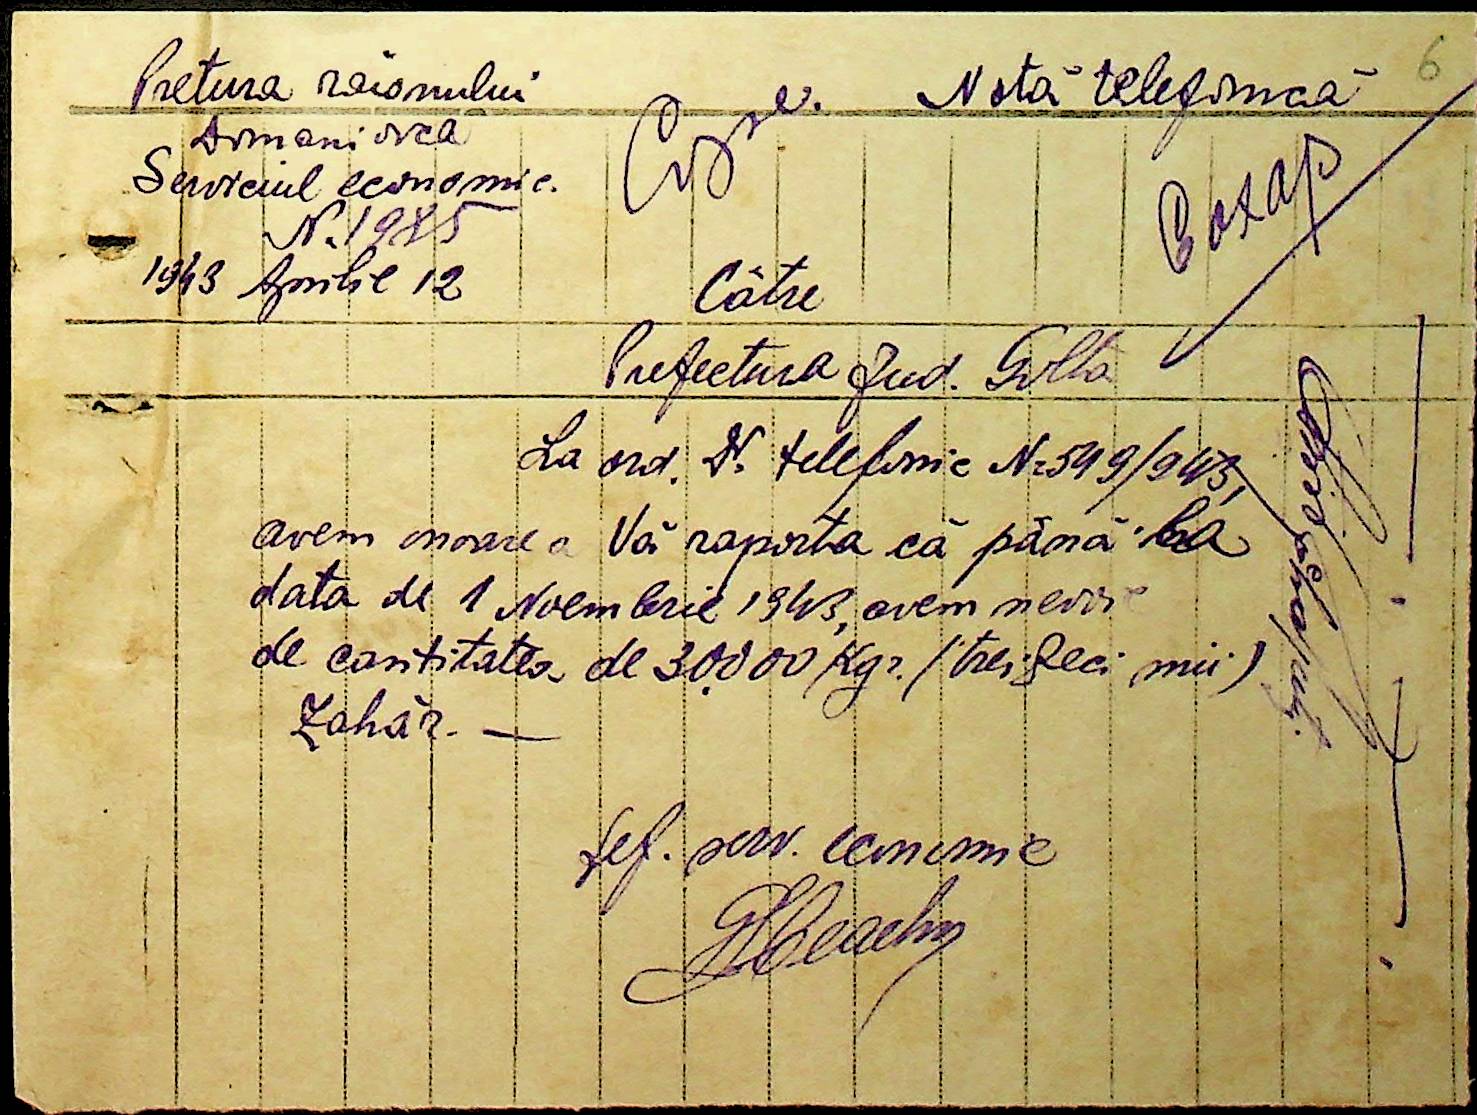 6
Pretura raionului
Domaniovca
Serviciul economic.
N. 1985
1943 Aprilie 12
Notă telefonică
Сахар
Către
Prefectura Jud. Golta
La ord. Dv. telefonic No 549/943,
avem onoare a Vă raporta că până la
data de 1 Noembrie 1943, avem nevoie
de cantitatea de 30.000 Kgr. (treizeci mii)
Zahăr. —
Șef. serv. economic